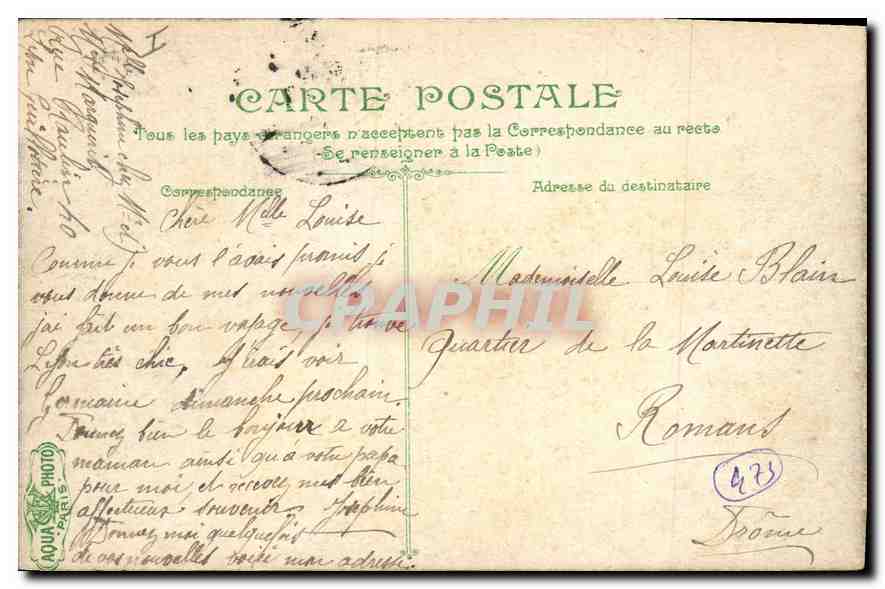 CARTE POSTALE
Tous les pays étrangers n'acceptent pas la Correspondance au recto
(Se renseigner à la Poste)
Correspondance
Adresse du destinataire
Chère Melle Louise
Comme je vous l'avais promis je
vous donne de mes nouvelles
j'ai fait un bon voyage, je trouve
Lyon très chic, j'irais voir
Germaine dimanche prochain.
Donnez bien le bonjour a votre
maman ainsi qu'à votre papa
pour moi, et recevez mes bien
affectueux souvenirs Joséphine
Donnez moi quelquefois
de vos nouvelles voici mon adresse.
Melle Joséphine chez Mr et
Me
rue 40
Lyon
Mademoiselle Louise Blain
Quartier de la Martinette
Romans
Drôme
473
AQUA PHOTO
PARIS
CPAPHIL